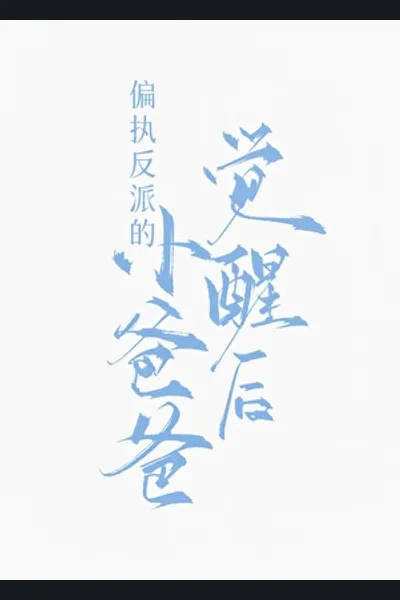 偏执反派的
小爸爸
觉醒后